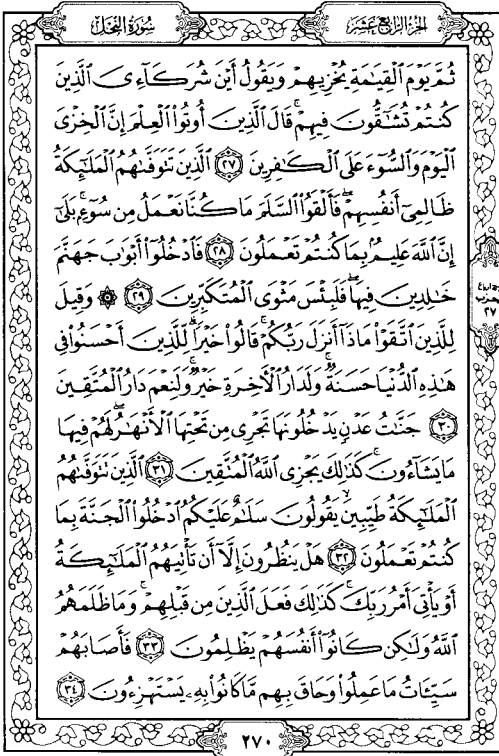 سُورَةُ النَّحْلِ
الجُزْءُ الرَّابِعَ عَشَرَ
ثُمَّ يَوْمَ ٱلْقِيَٰمَةِ يُخْزِيهِمْ وَيَقُولُ أَيْنَ شُرَكَآءِىَ ٱلَّذِينَ
كُنتُمْ تُشَٰٓقُّونَ فِيهِمْ ۚ قَالَ ٱلَّذِينَ أُوتُوا۟ ٱلْعِلْمَ إِنَّ ٱلْخِزْىَ
ٱلْيَوْمَ وَٱلسُّوٓءَ عَلَى ٱلْكَٰفِرِينَ ٢٧ ٱلَّذِينَ تَتَوَفَّىٰهُمُ ٱلْمَلَٰٓئِكَةُ
ظَالِمِىٓ أَنفُسِهِمْ ۖ فَأَلْقَوُا۟ ٱلسَّلَمَ مَا كُنَّا نَعْمَلُ مِن سُوٓءٍۭ ۚ بَلَىٰٓ
إِنَّ ٱللَّهَ عَلِيمٌۢ بِمَا كُنتُمْ تَعْمَلُونَ ٢٨ فَٱدْخُلُوٓا۟ أَبْوَٰبَ جَهَنَّمَ
خَٰلِدِينَ فِيهَا ۖ فَلَبِئْسَ مَثْوَى ٱلْمُتَكَبِّرِينَ ٢٩ ۞ وَقِيلَ
لِلَّذِينَ ٱتَّقَوْا۟ مَاذَآ أَنزَلَ رَبُّكُمْ ۚ قَالُوا۟ خَيْرًا ۗ لِّلَّذِينَ أَحْسَنُوا۟ فِى
هَٰذِهِ ٱلدُّنْيَا حَسَنَةٌ ۚ وَلَدَارُ ٱلْـَٔاخِرَةِ خَيْرٌ ۚ وَلَنِعْمَ دَارُ ٱلْمُتَّقِينَ
٣٠ جَنَّٰتُ عَدْنٍ يَدْخُلُونَهَا تَجْرِى مِن تَحْتِهَا ٱلْأَنْهَٰرُ ۖ لَهُمْ فِيهَا
مَا يَشَآءُونَ ۚ كَذَٰلِكَ يَجْزِى ٱللَّهُ ٱلْمُتَّقِينَ ٣١ ٱلَّذِينَ تَتَوَفَّىٰهُمُ
ٱلْمَلَٰٓئِكَةُ طَيِّبِينَ ۙ يَقُولُونَ سَلَٰمٌ عَلَيْكُمُ ٱدْخُلُوا۟ ٱلْجَنَّةَ بِمَا
كُنتُمْ تَعْمَلُونَ ٣٢ هَلْ يَنظُرُونَ إِلَّآ أَن تَأْتِيَهُمُ ٱلْمَلَٰٓئِكَةُ
أَوْ يَأْتِىَ أَمْرُ رَبِّكَ ۚ كَذَٰلِكَ فَعَلَ ٱلَّذِينَ مِن قَبْلِهِمْ ۚ وَمَا ظَلَمَهُمُ
ٱللَّهُ وَلَٰكِن كَانُوٓا۟ أَنفُسَهُمْ يَظْلِمُونَ ٣٣ فَأَصَابَهُمْ
سَيِّـَٔاتُ مَا عَمِلُوا۟ وَحَاقَ بِهِم مَّا كَانُوا۟ بِهِۦ يَسْتَهْزِءُونَ ٣٤
٢٧
٢٧٠